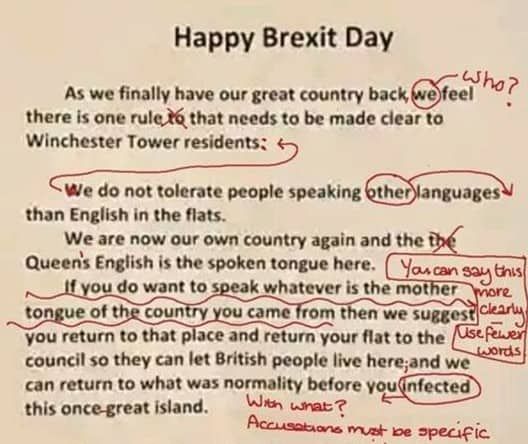 Happy Brexit Day
who?
As we finally have our great country back, we feel
there is one rule to that needs to be made clear to
Winchester Tower residents:
We do not tolerate people speaking other languages
than English in the flats.
We are now our own country again and the the
Queen's English is the spoken tongue here.
You can say this
If you do want to speak whatever is the mother
more
tongue of the country you came from then we suggest
clearly
you return to that place and return your flat to the
Use fewer
council so they can let British people live here; and we
words
can return to what was normality before you infected
this once-great island.
With what?
Accusations must be specific